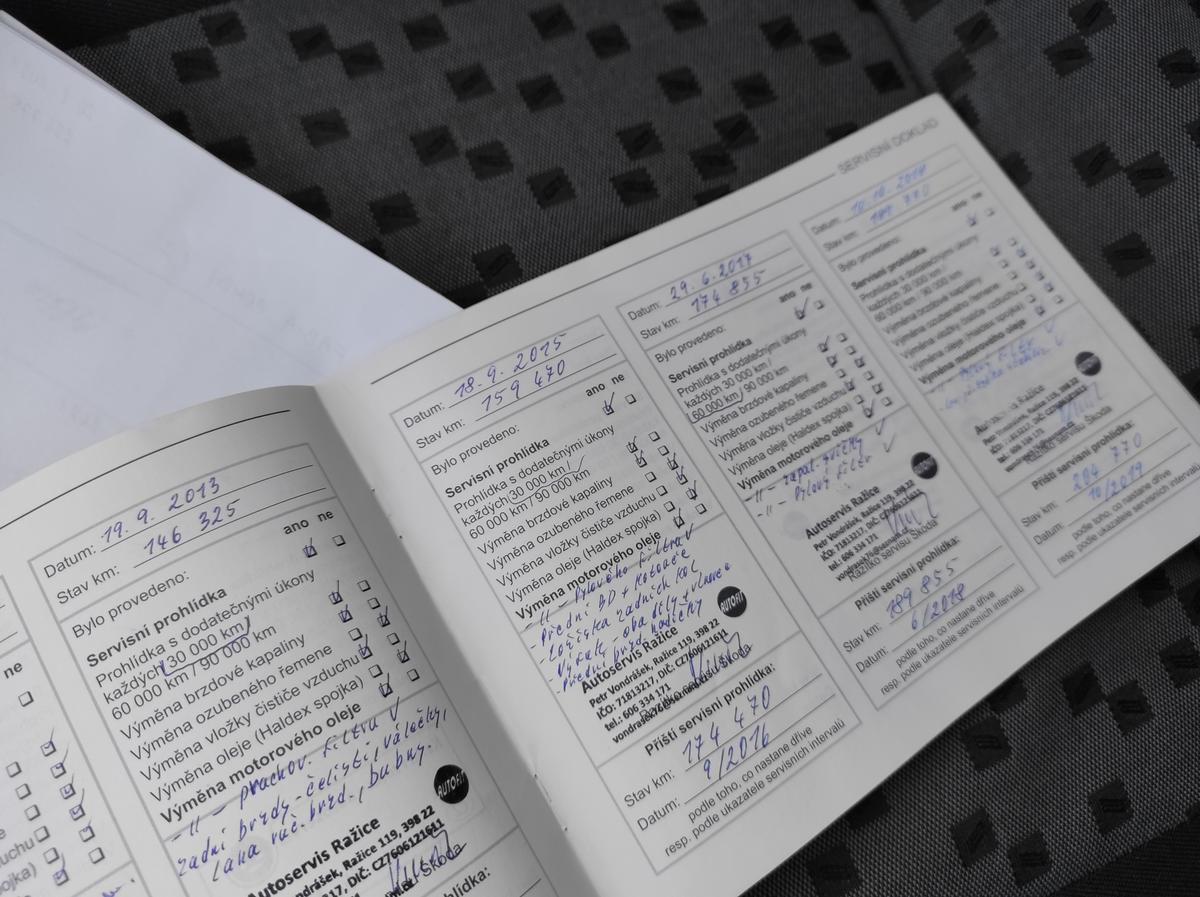 SERVISNÍ DOKLAD
ne
duchu
pojka)
Datum: 19. 9. 2013
Stav km: 146 325
Bylo provedeno:
ano ne
Servisní prohlídka
Prohlídka s dodatečnými úkony
každých 30 000 km/
60 000 km / 90 000 km
Výměna brzdové kapaliny
Výměna ozubeného řemene
Výměna vložky čističe vzduchu
Výměna oleje (Haldex spojka)
Výměna motorového oleje
- 11 - prachov. filtru
zadní brzdy - čelisti, válečky,
lana ruč. brzd., bubny.
AUTOFIT
Autoservis Ražice
Vondrášek, Ražice 119, 398 22
217, DIČ: CZ7606121611
Škoda
hlídka:
Datum: 18. 9. 2015
Stav km: 159 470
Bylo provedeno:
ano ne
Servisní prohlídka
Prohlídka s dodatečnými úkony
každých 30 000 km /
60 000 km / 90 000 km
Výměna brzdové kapaliny
Výměna ozubeného řemene
Výměna vložky čističe vzduchu
Výměna oleje (Haldex spojka)
Výměna motorového oleje
- 11 - Pylového filtru
- Přední BD + kotouče
- Ložiska zadních kol
- Přední brzd. hadičky
AUTOFIT
Autoservis Ražice
Petr Vondrášek, Ražice 119, 398 22
IČO: 71813217, DIČ: CZ7606121611
tel.: 606 334 171
Příští servisní prohlídka:
Stav km: 174 470
Datum: 9/2016
podle toho, co nastane dříve
resp. podle ukazatele servisních intervalů
Datum: 29. 6. 2017
Stav km: 174 855
Bylo provedeno:
ano ne
Servisní prohlídka
Prohlídka s dodatečnými úkony
každých 30 000 km /
60 000 km / 90 000 km
Výměna brzdové kapaliny
Výměna ozubeného řemene
Výměna vložky čističe vzduchu
Výměna oleje (Haldex spojka)
Výměna motorového oleje
- 11 - zapal. svíčky
- 11 - Pylový filtr
AUTOFIT
Autoservis Ražice
Petr Vondrášek, Ražice 119, 398 22
IČO: 71813217, DIČ: CZ7606121611
tel.: 606 334 171
Razítko servisu Škoda
Příští servisní prohlídka:
Stav km: 189 855
Datum: 6/2018
podle toho, co nastane dříve
resp. podle ukazatele servisních intervalů
Datum:
Stav km: 770
Bylo provedeno:
ano ne
Servisní prohlídka
Prohlídka s dodatečnými úkony
každých 30 000 km /
60 000 km / 90 000 km
Výměna brzdové kapaliny
Výměna ozubeného řemene
Výměna vložky čističe vzduchu
Výměna oleje (Haldex spojka)
Výměna motorového oleje
- Pylový filtr
Autoservis Ražice
Razítko servisu Škoda
Příští servisní prohlídka:
Stav km: 204 770
Datum: 10/2019
podle toho, co nastane dříve
resp. podle ukazatele servisních intervalů